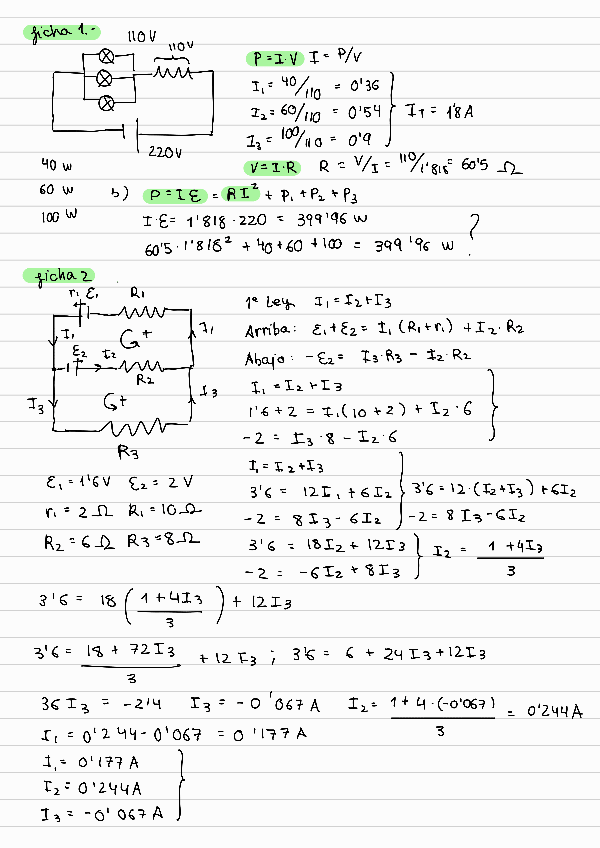 ficha 1.-
110V
110V
220V
40 W
60 W
100 W
P=I·V I = P/V
I₁ = 40/110 = 0'36
I₂ = 60/110 = 0'54
I₃ = 100/110 = 0'9
I_T = 1'8 A
V=I·R R = V/I = 110/1'818 = 60'5 Ω
b) P=I·ε = RI² + P₁ + P₂ + P₃
I·ε = 1'818 · 220 = 399'96 W
60'5 · 1'818² + 40 + 60 + 100 = 399'96 W
?
ficha 2
r₁ ε₁ R₁
I₁ G+ I₁
ε₂ I₂
R₂
I₃ G+ I₃
R₃
ε₁ = 1'6 V ε₂ = 2 V
r₁ = 2 Ω R₁ = 10 Ω
R₂ = 6 Ω R₃ = 8 Ω
1ª Ley I₁ = I₂ + I₃
Arriba: ε₁ + ε₂ = I₁ (R₁ + r₁) + I₂ · R₂
Abajo: -ε₂ = I₃ · R₃ - I₂ · R₂
I₁ = I₂ + I₃
1'6 + 2 = I₁ (10 + 2) + I₂ · 6
-2 = I₃ · 8 - I₂ · 6
I₁ = I₂ + I₃
3'6 = 12 I₁ + 6 I₂
-2 = 8 I₃ - 6 I₂
3'6 = 12 · (I₂ + I₃) + 6 I₂
-2 = 8 I₃ - 6 I₂
3'6 = 18 I₂ + 12 I₃
-2 = -6 I₂ + 8 I₃
I₂ = 1 + 4 I₃ / 3
3'6 = 18 (1 + 4 I₃ / 3) + 12 I₃
3'6 = 18 + 72 I₃ / 3 + 12 I₃ ; 3'6 = 6 + 24 I₃ + 12 I₃
36 I₃ = -2'4 I₃ = -0'067 A I₂ = 1 + 4 · (-0'067) / 3 = 0'244 A
I₁ = 0'244 - 0'067 = 0'177 A
I₁ = 0'177 A
I₂ = 0'244 A
I₃ = -0'067 A